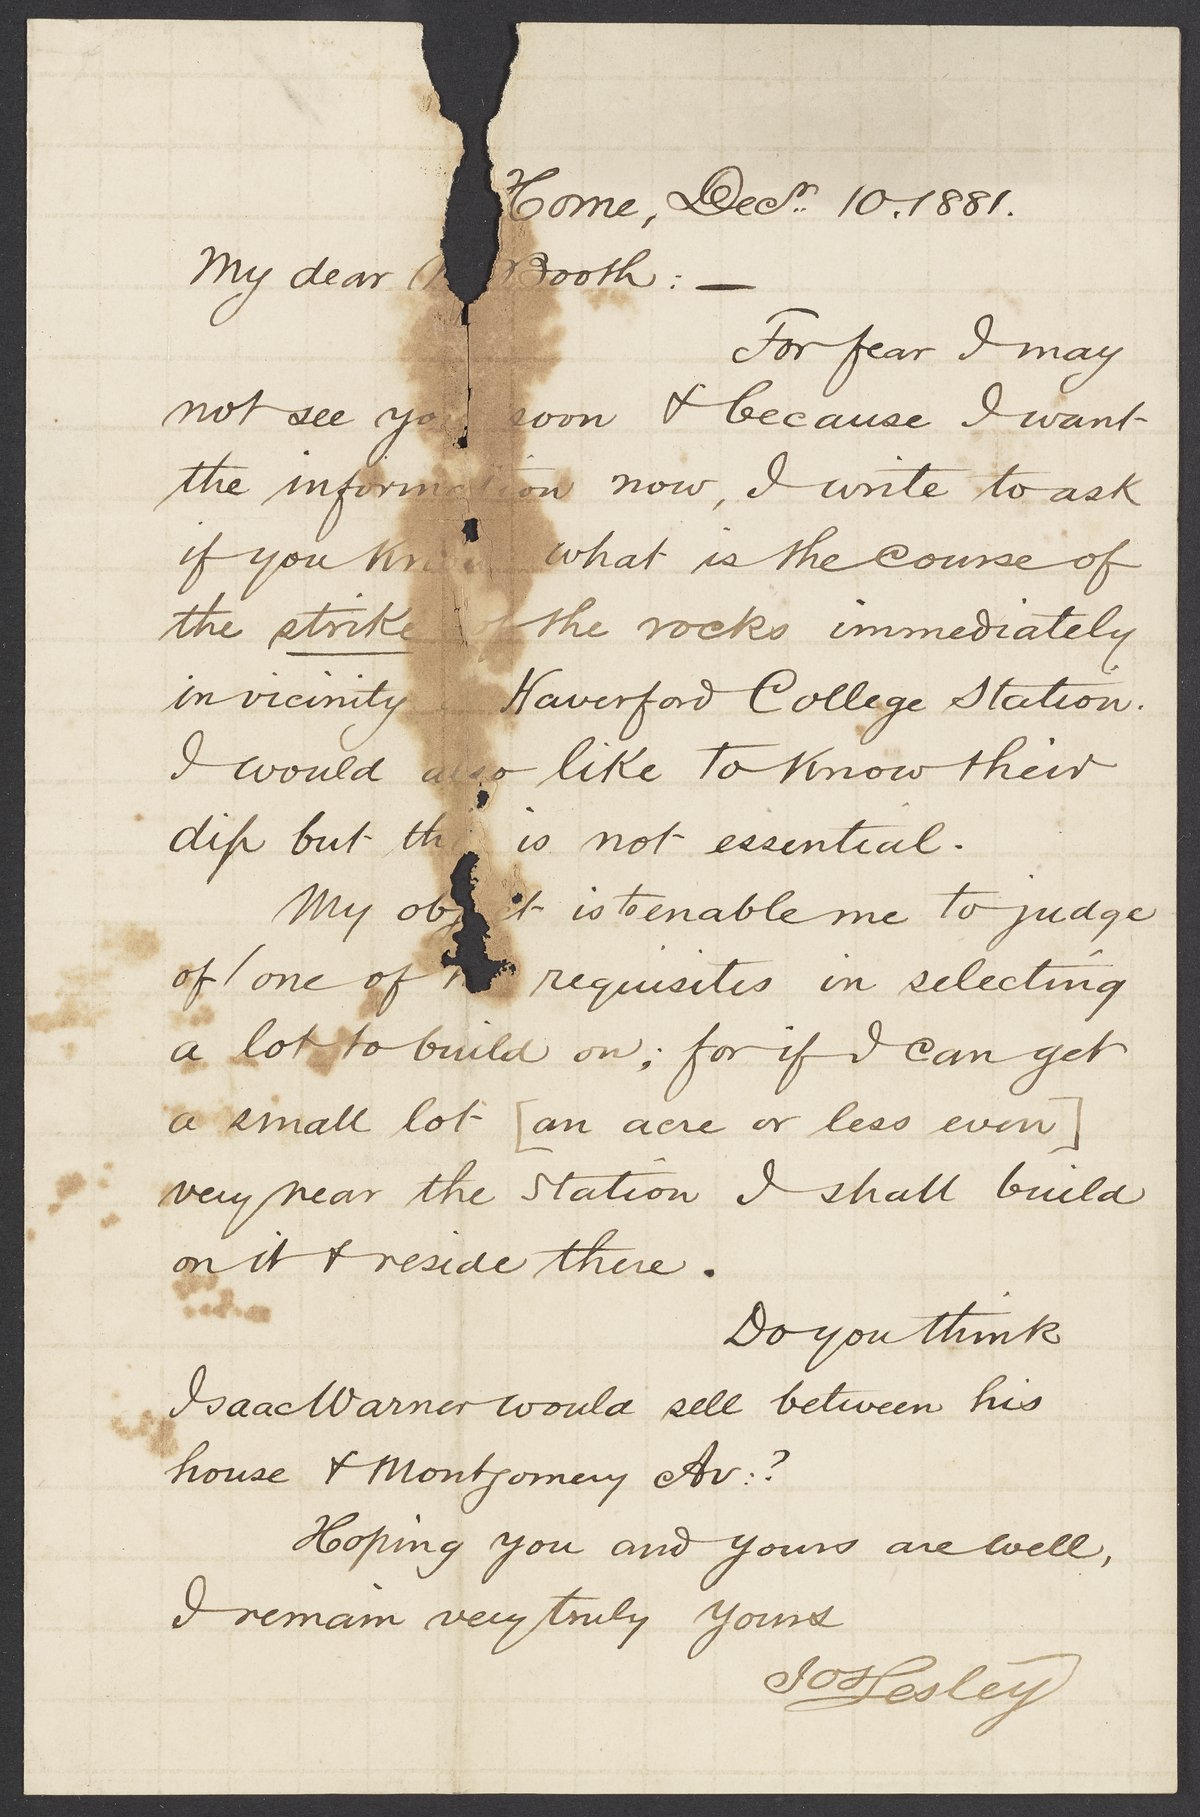 Home, Decr. 10. 1881.
My dear Booth: —
For fear I may
not see you soon & because I want
the information now, I write to ask
if you know what is the course of
the strike of the rocks immediately
in vicinity Haverford College Station.
I would also like to know their
dip but this is not essential.
My object is to enable me to judge
of 1 one of requisites in selecting
a lot to build on; for if I can get
a small lot [an acre or less even]
very near the Station I shall build
on it & reside there.
Do you think
Isaac Warner would sell between his
house & Montgomery Av:?
Hoping you and yours are well,
I remain very truly yours
Jos Lesley